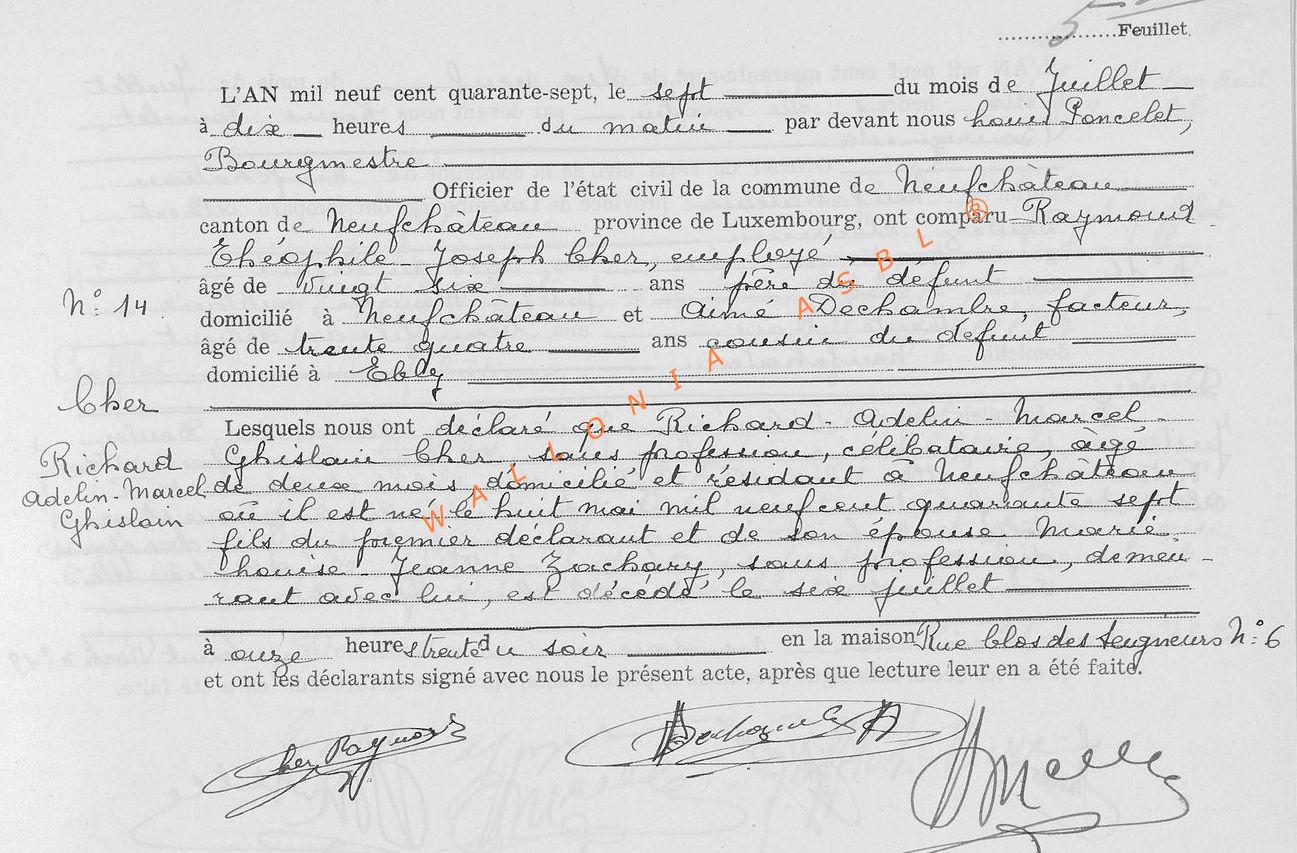 5
..................Feuillet.
L'AN mil neuf cent quarante-sept, le sept du mois de Juillet
à dix heures du matin par devant nous Louis Poncelet,
Bourgmestre
Officier de l'état civil de la commune de Neufchâteau
canton de Neufchâteau province de Luxembourg, ont comparu Raymond
Théophile Joseph Cher, employé
âgé de vingt six ans père du défunt
N° 14
domicilié à Neufchâteau et Aimé Dechambre, facteur,
âgé de trente quatre ans cousin du défunt
domicilié à Ebly
Cher
Richard
Adelin-Marcel
Ghislain
Lesquels nous ont déclaré que Richard-Adelin-Marcel
Ghislain Cher sans profession, célibataire, âgé
de deux mois domicilié et résidant à Neufchâteau
où il est né le huit mai mil neuf cent quarante sept
fils du premier déclarant et de son épouse Marie
Louise Jeanne Zachary, sans profession, demeu-
rant avec lui, est décédé le six juillet
à onze heures trente du soir en la maison Rue Clos des Seugneurs N° 6
et ont les déclarants signé avec nous le présent acte, après que lecture leur en a été faite.
Cher Raymond
WALLONIA ASBL ®